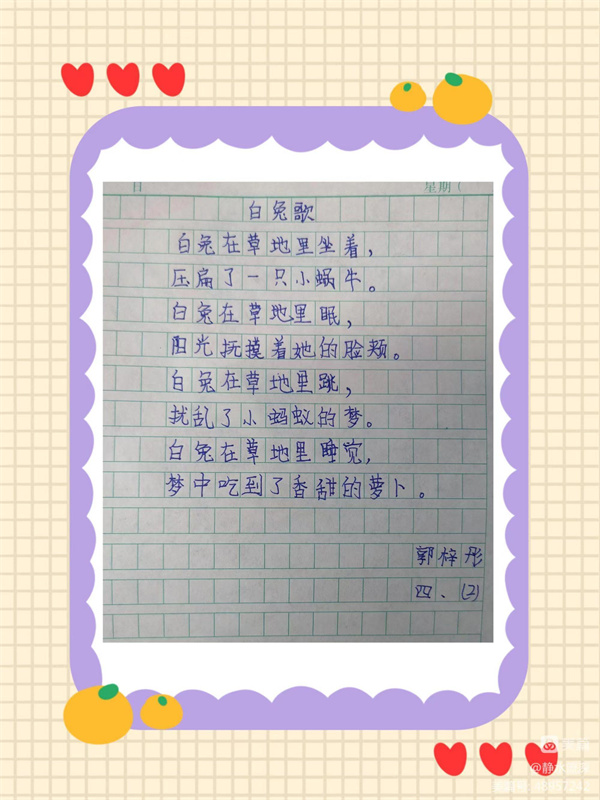 日
星期(
白兔歌
白兔在草地里坐着，
压扁了一只小蜗牛。
白兔在草地里眠，
阳光抚摸着她的脸颊。
白兔在草地里跳，
扰乱了小蚂蚁的梦。
白兔在草地里睡觉，
梦中吃到了香甜的萝卜。
郭梓彤
四、(2)